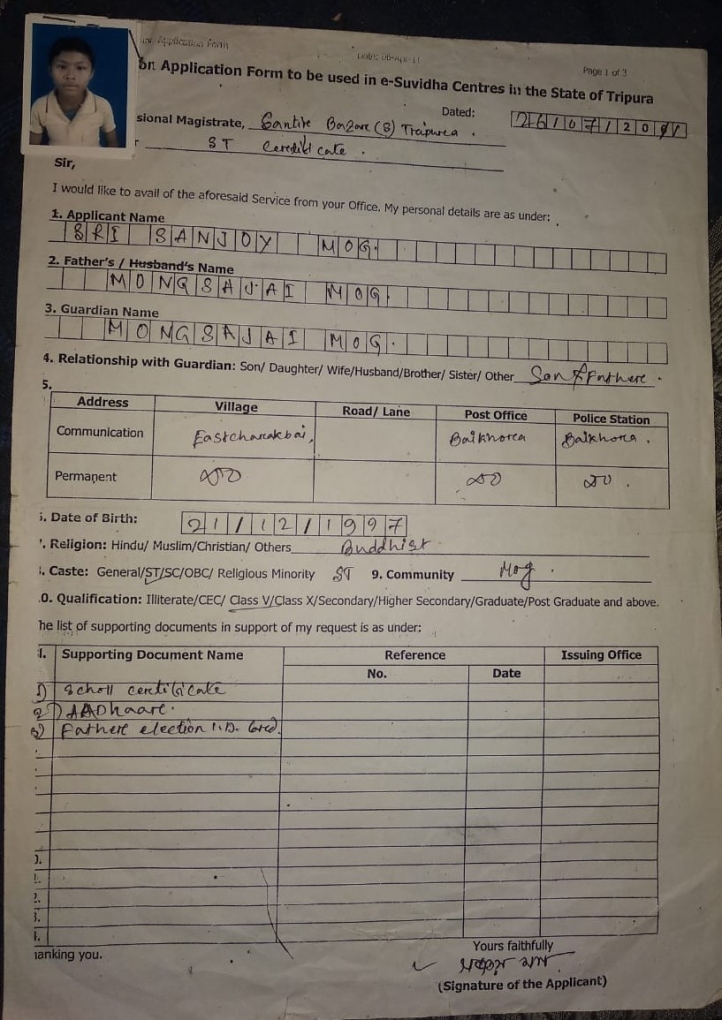 Application Form
Page 1 of 3
on Application Form to be used in e-Suvidha Centres in the State of Tripura
Dated: 26/07/20
sional Magistrate, Santir Bazar (S)
ST
Sir,
I would like to avail of the aforesaid Service from your Office. My personal details are as under:
1. Applicant Name
SRI SANJOY MOG.
2. Father's / Husband's Name
MONGSAJAI MOG.
3. Guardian Name
MONGSAJAI MOG.
4. Relationship with Guardian: Son/ Daughter/ Wife/Husband/Brother/ Sister/ Other Son
5.
Address Village Road/ Lane Post Office Police Station
Communication Eastcharakbai, Baikhora Baikhora.
Permanent
. Date of Birth: 21/12/1997
. Religion: Hindu/ Muslim/Christian/ Others Buddhist
. Caste: General/ST/SC/OBC/ Religious Minority ST 9. Community Mog.
0. Qualification: Illiterate/CEC/ Class V/Class X/Secondary/Higher Secondary/Graduate/Post Graduate and above.
he list of supporting documents in support of my request is as under:
Supporting Document Name Reference Issuing Office
No. Date
1) Scholl certificate
2) AADhaare.
3) Fathere election I.D. Card.
hanking you.
Yours faithfully
(Signature of the Applicant)